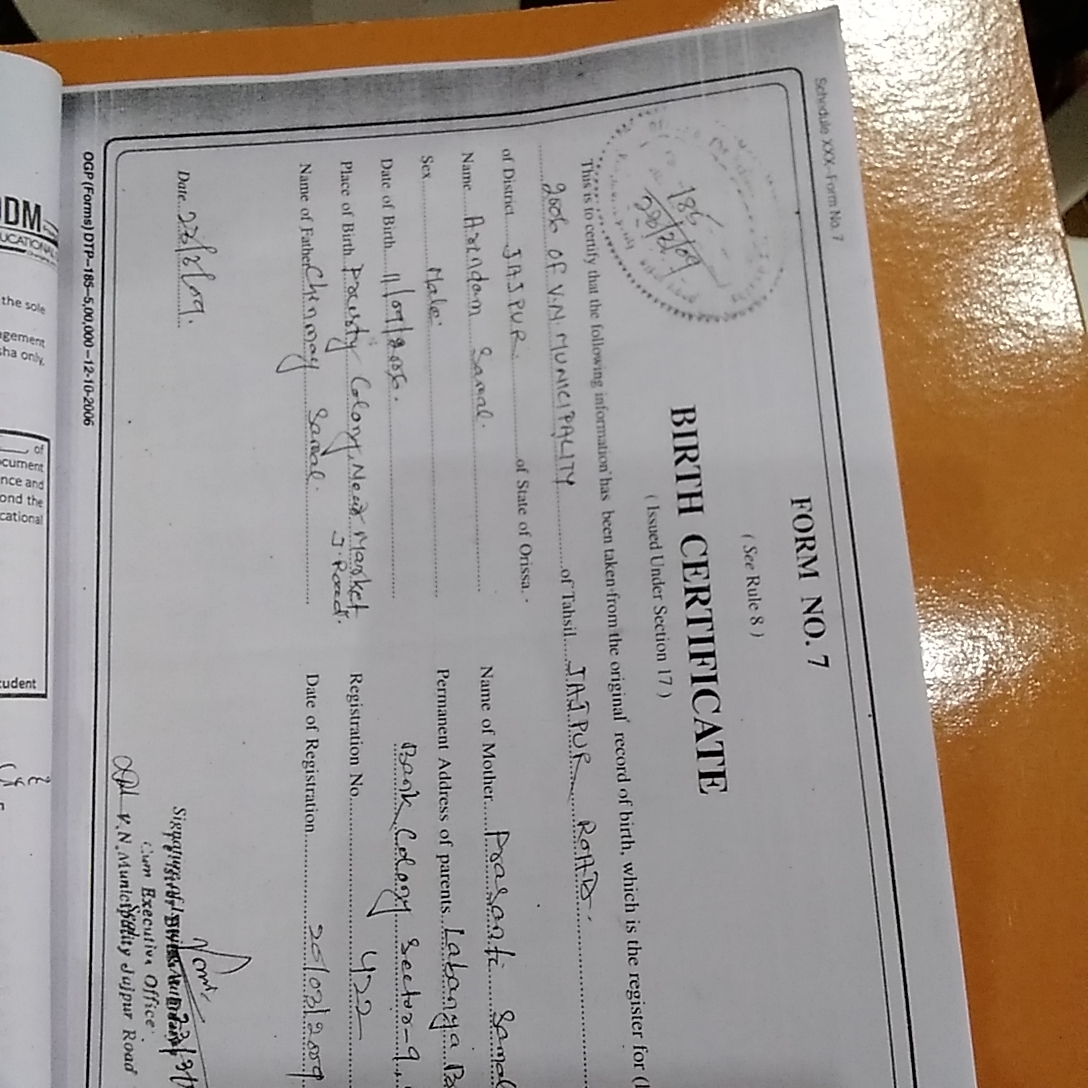 Schedule XXX-Form No. 7
FORM NO. 7
( See Rule 8 )
BIRTH CERTIFICATE
( Issued Under Section 17 )
186
This is to certify that the following information has been taken from the original record of birth, which is the register for
2006 OF V.N. MUNICIPALITY of Tahsil JAJPUR ROAD.
of District JAJPUR. of State of Orissa.
Name Arendom Samal.
Sex Male.
Date of Birth 11/09/2006.
Place of Birth Colony, New Market
J. Road.
Name of Father Chinmay Samal.
Name of Mother Prasanti Samal
Permanent Address of parents Labanya
Bank Colony Sector-9,
Registration No. 422
Date of Registration 20/02/2009
Date
Cum Executive Office
V.N. Municipality Jajpur Road
OGP (Forms) DTP-185-5,00,000-12-10-2006
DDM
UCATIONAL
the sole
agement
sha only,
of
cument
nce and
ond the
cational
tudent